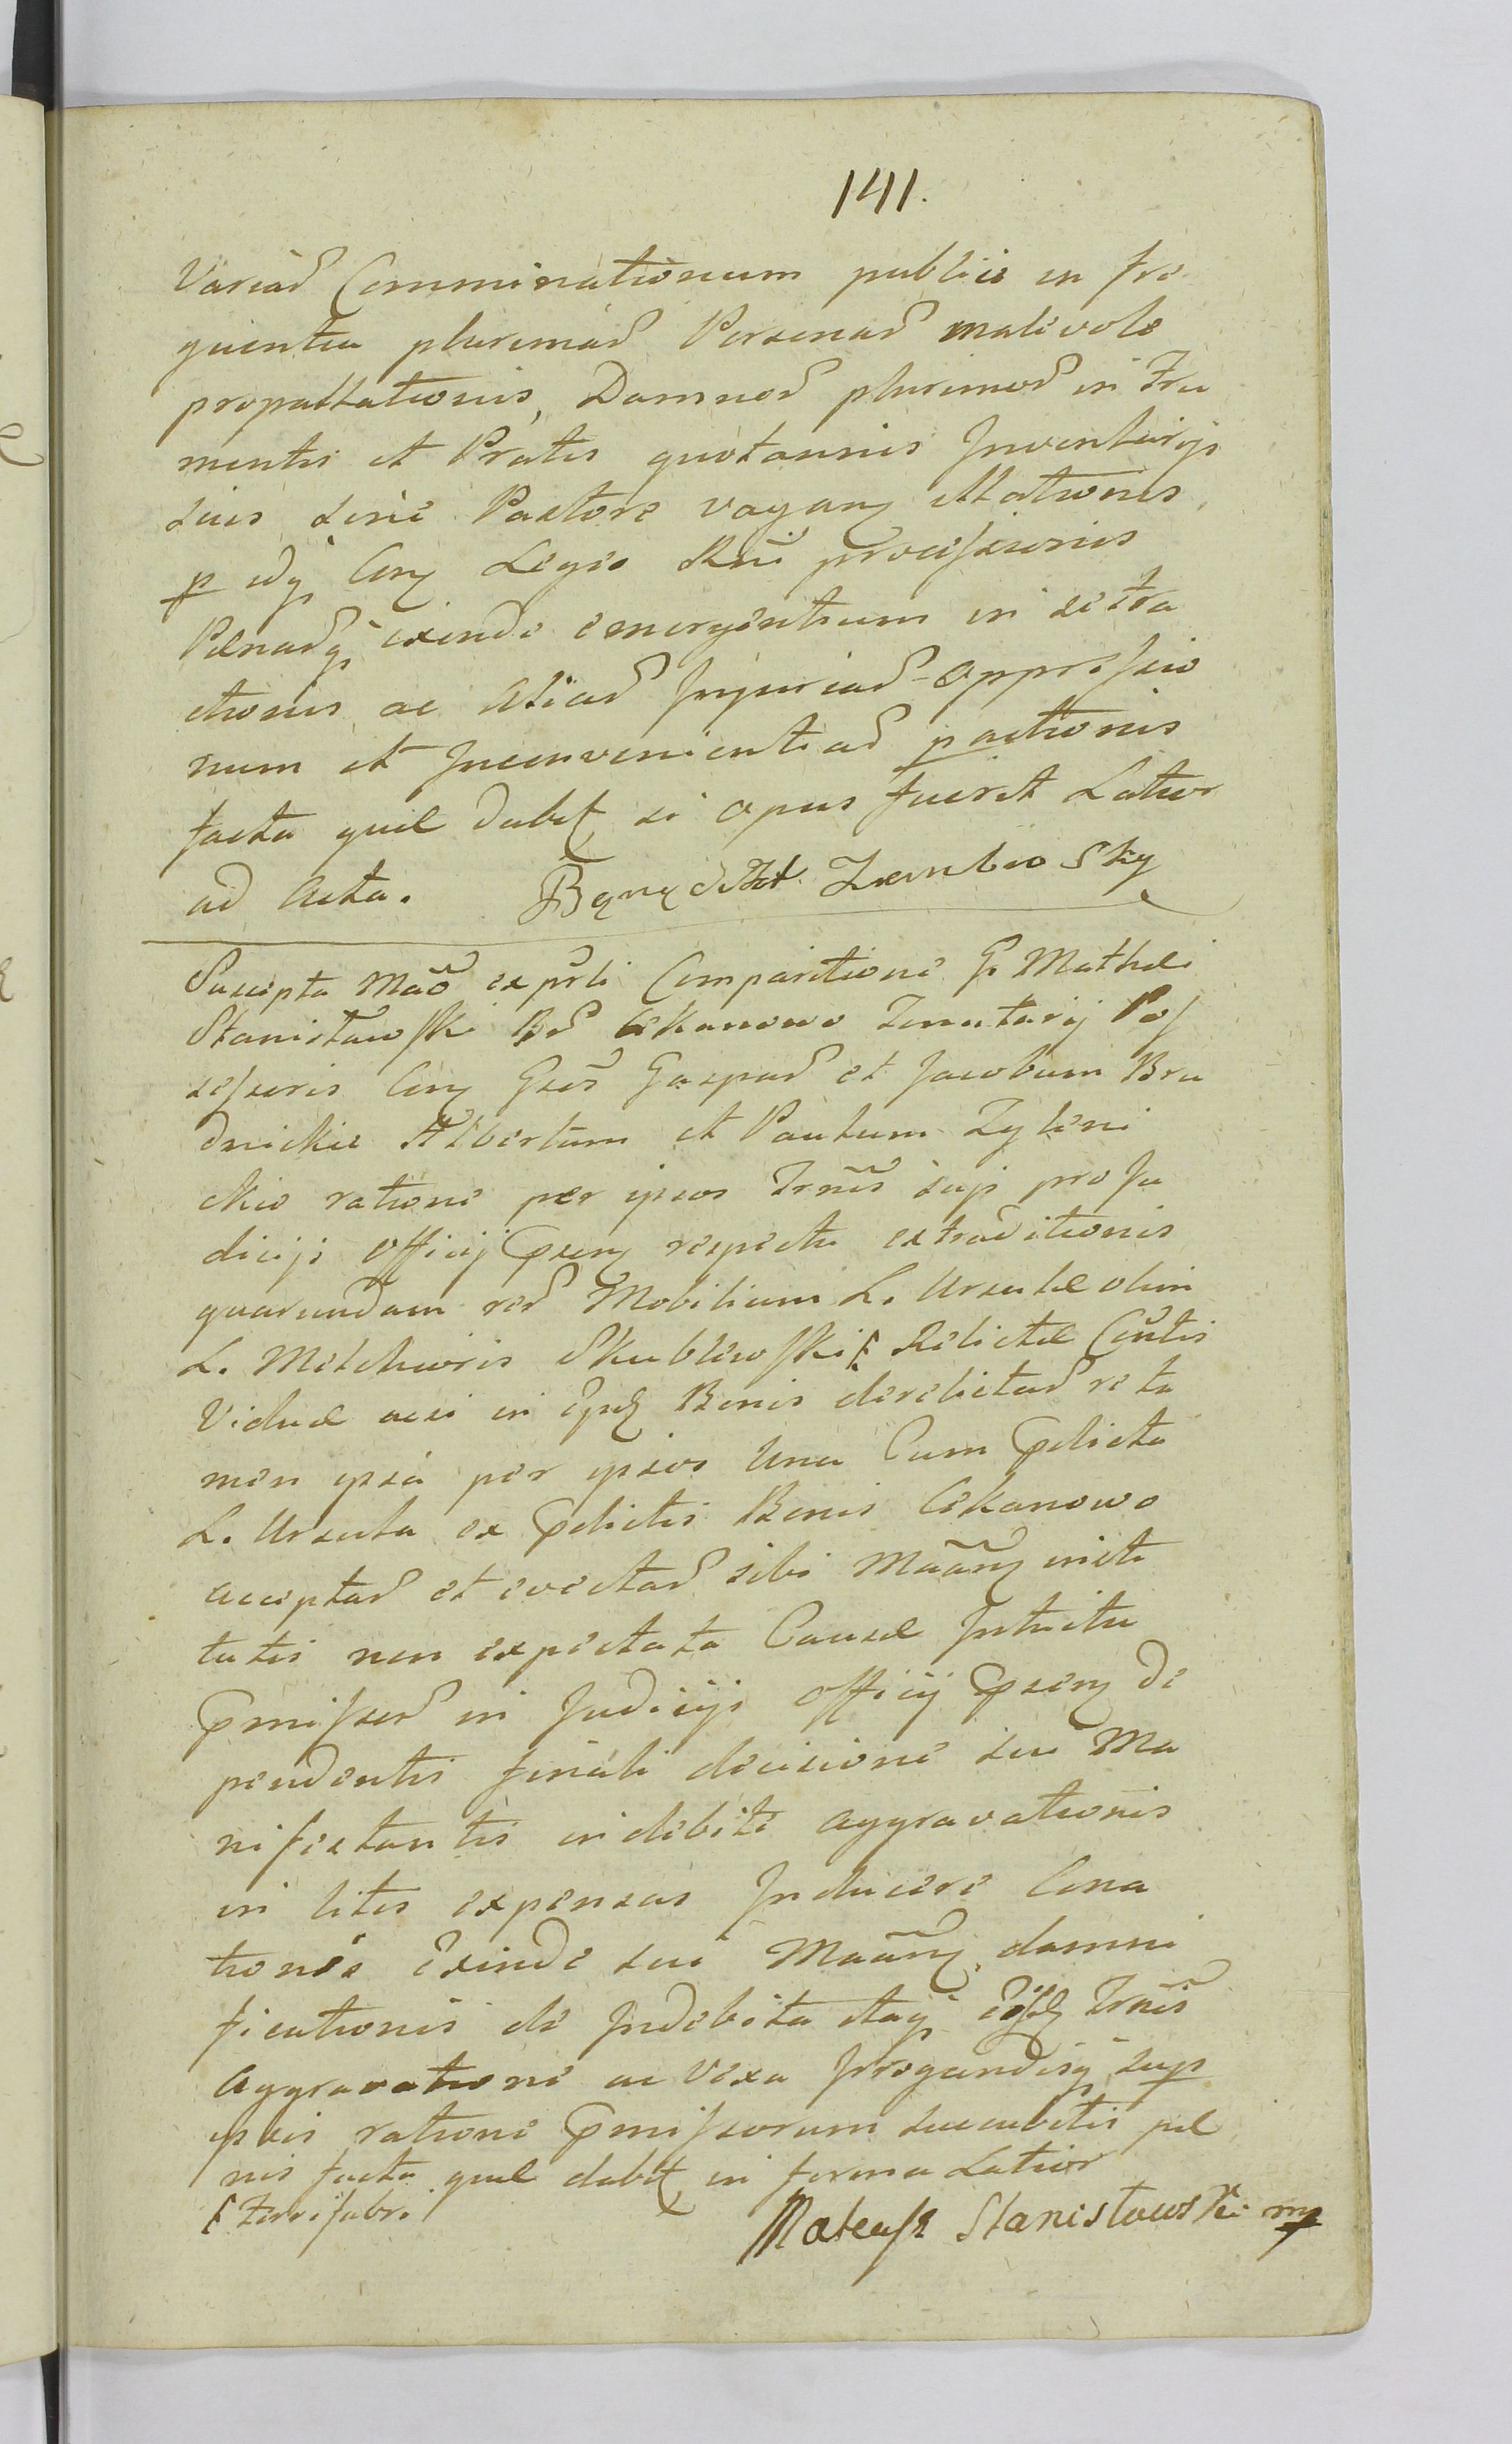 141.
Variar Comminationum publice in fre
quentia plurimar Personar malevole
propallationis, Damnor plurimor in Fru
mentis et Pratis quotannis Inventarijs
suis sine Pastore vagan illationis,
p idq Con Leges Rni processionis
Penarq exinde emergentium in se tra
ctionis ac Aliar Injuriar Oppressio
num et Inconvenientiar pactionis
facta quæ dabit si opus fuerit Latior
ad Acta. Benedikt Zembrosky
Suscepta Mão ex prli Comparitione G. Mathei
Stanisławski Bor Cekanowo Tenutarij Pos
sessoris Con Gsos Gaspar et Jacobum Bru
dnickie Albertum et Paulum Zyleni
ckie ratione per ipsos Trnis suis pro Ju
dicijs Officij Psen respectu extraditionis
quarundam rer Mobilium L. Ursulæ olim
L. Melchioris Skublewski Relictæ Conthis
Viduæ acsi in Bonis derelictar re ta
men ipsa per ipsos Una Cum Pdicta
L. Ursula ex Pdictis Bonis Cekanowo
acceptar et evectar sibi Mãan insti
tutis non expectata Causæ Intuitu
Pmissor in Judicijs Officij Psen De
pendentis finali decisione sui Ma
nifestantis indebite aggravationis
in litis expensas Inducere Cona
tionis Exinde sui Mãan damni
ficationis de Indebita itaq Trnis
Aggravatione ac Vexa Irrogandisq sup
ipsis ratione Pmissorum succubitis pæ
nis facta quæ dabit in forma Latior
Ferrifabri
Mateusz Stanisławski mp